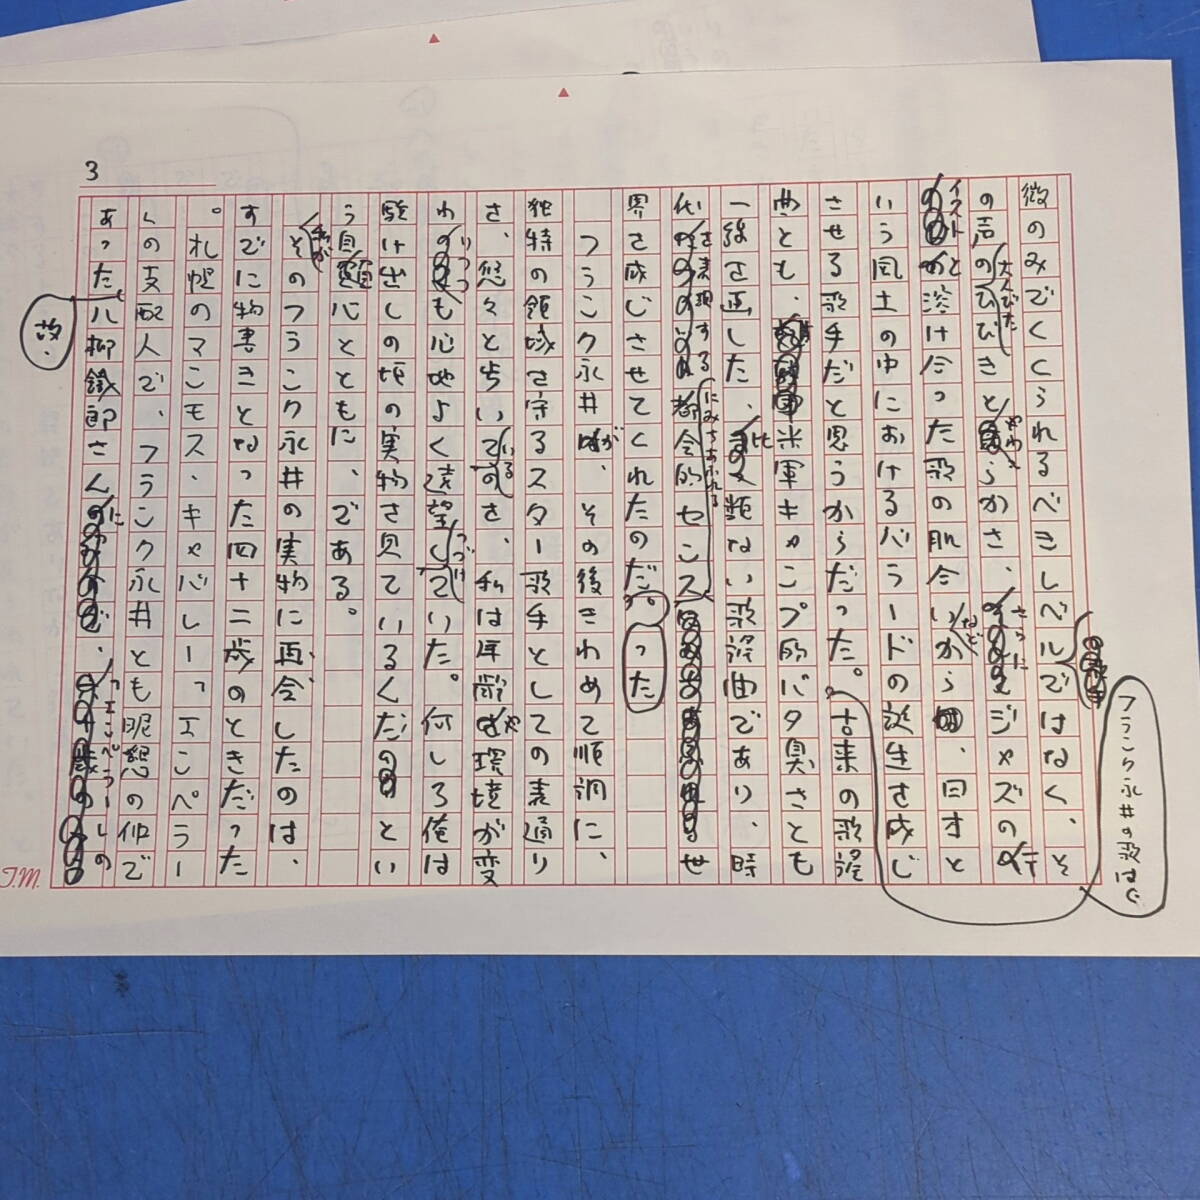 3
徴のみでくくられるべきレベルではなく、そ
の声の大人びたひびきとやわらかさ、さらにジャズのテ
イストと溶け合った歌の肌合いなどから、日本と
いう風土の中におけるバラードの誕生を感じ
させる歌手だと思うからだった。古来の歌謡
曲とも、米軍キャンプ的バタ臭さとも
一線を画した、比類ない歌謡曲であり、時
代を表現する都会的センスにみちあふれる世
界を感じさせてくれたのだった。
フランク永井が、その後きわめて順調に、
独特の領域を守るスター歌手としての表通り
を、悠々と歩いているを、私は年齢や環境が変
わりつつも心地よく遠望しつづけていた。何しろ俺は
駆け出しの頃の実物を見ているんだ とい
う自慢心とともに、である。
私がそのフランク永井の実物に再会したのは、
すでに物書きとなった四十二歳のときだった
。札幌のマンモス・キャバレー〝エンペラー
〟の支配人で、フランク永井とも昵懇の仲で
あった故・八柳鐵郎さんに、〝エンペラー〟の
フランク永井の歌は
故・
T.M.